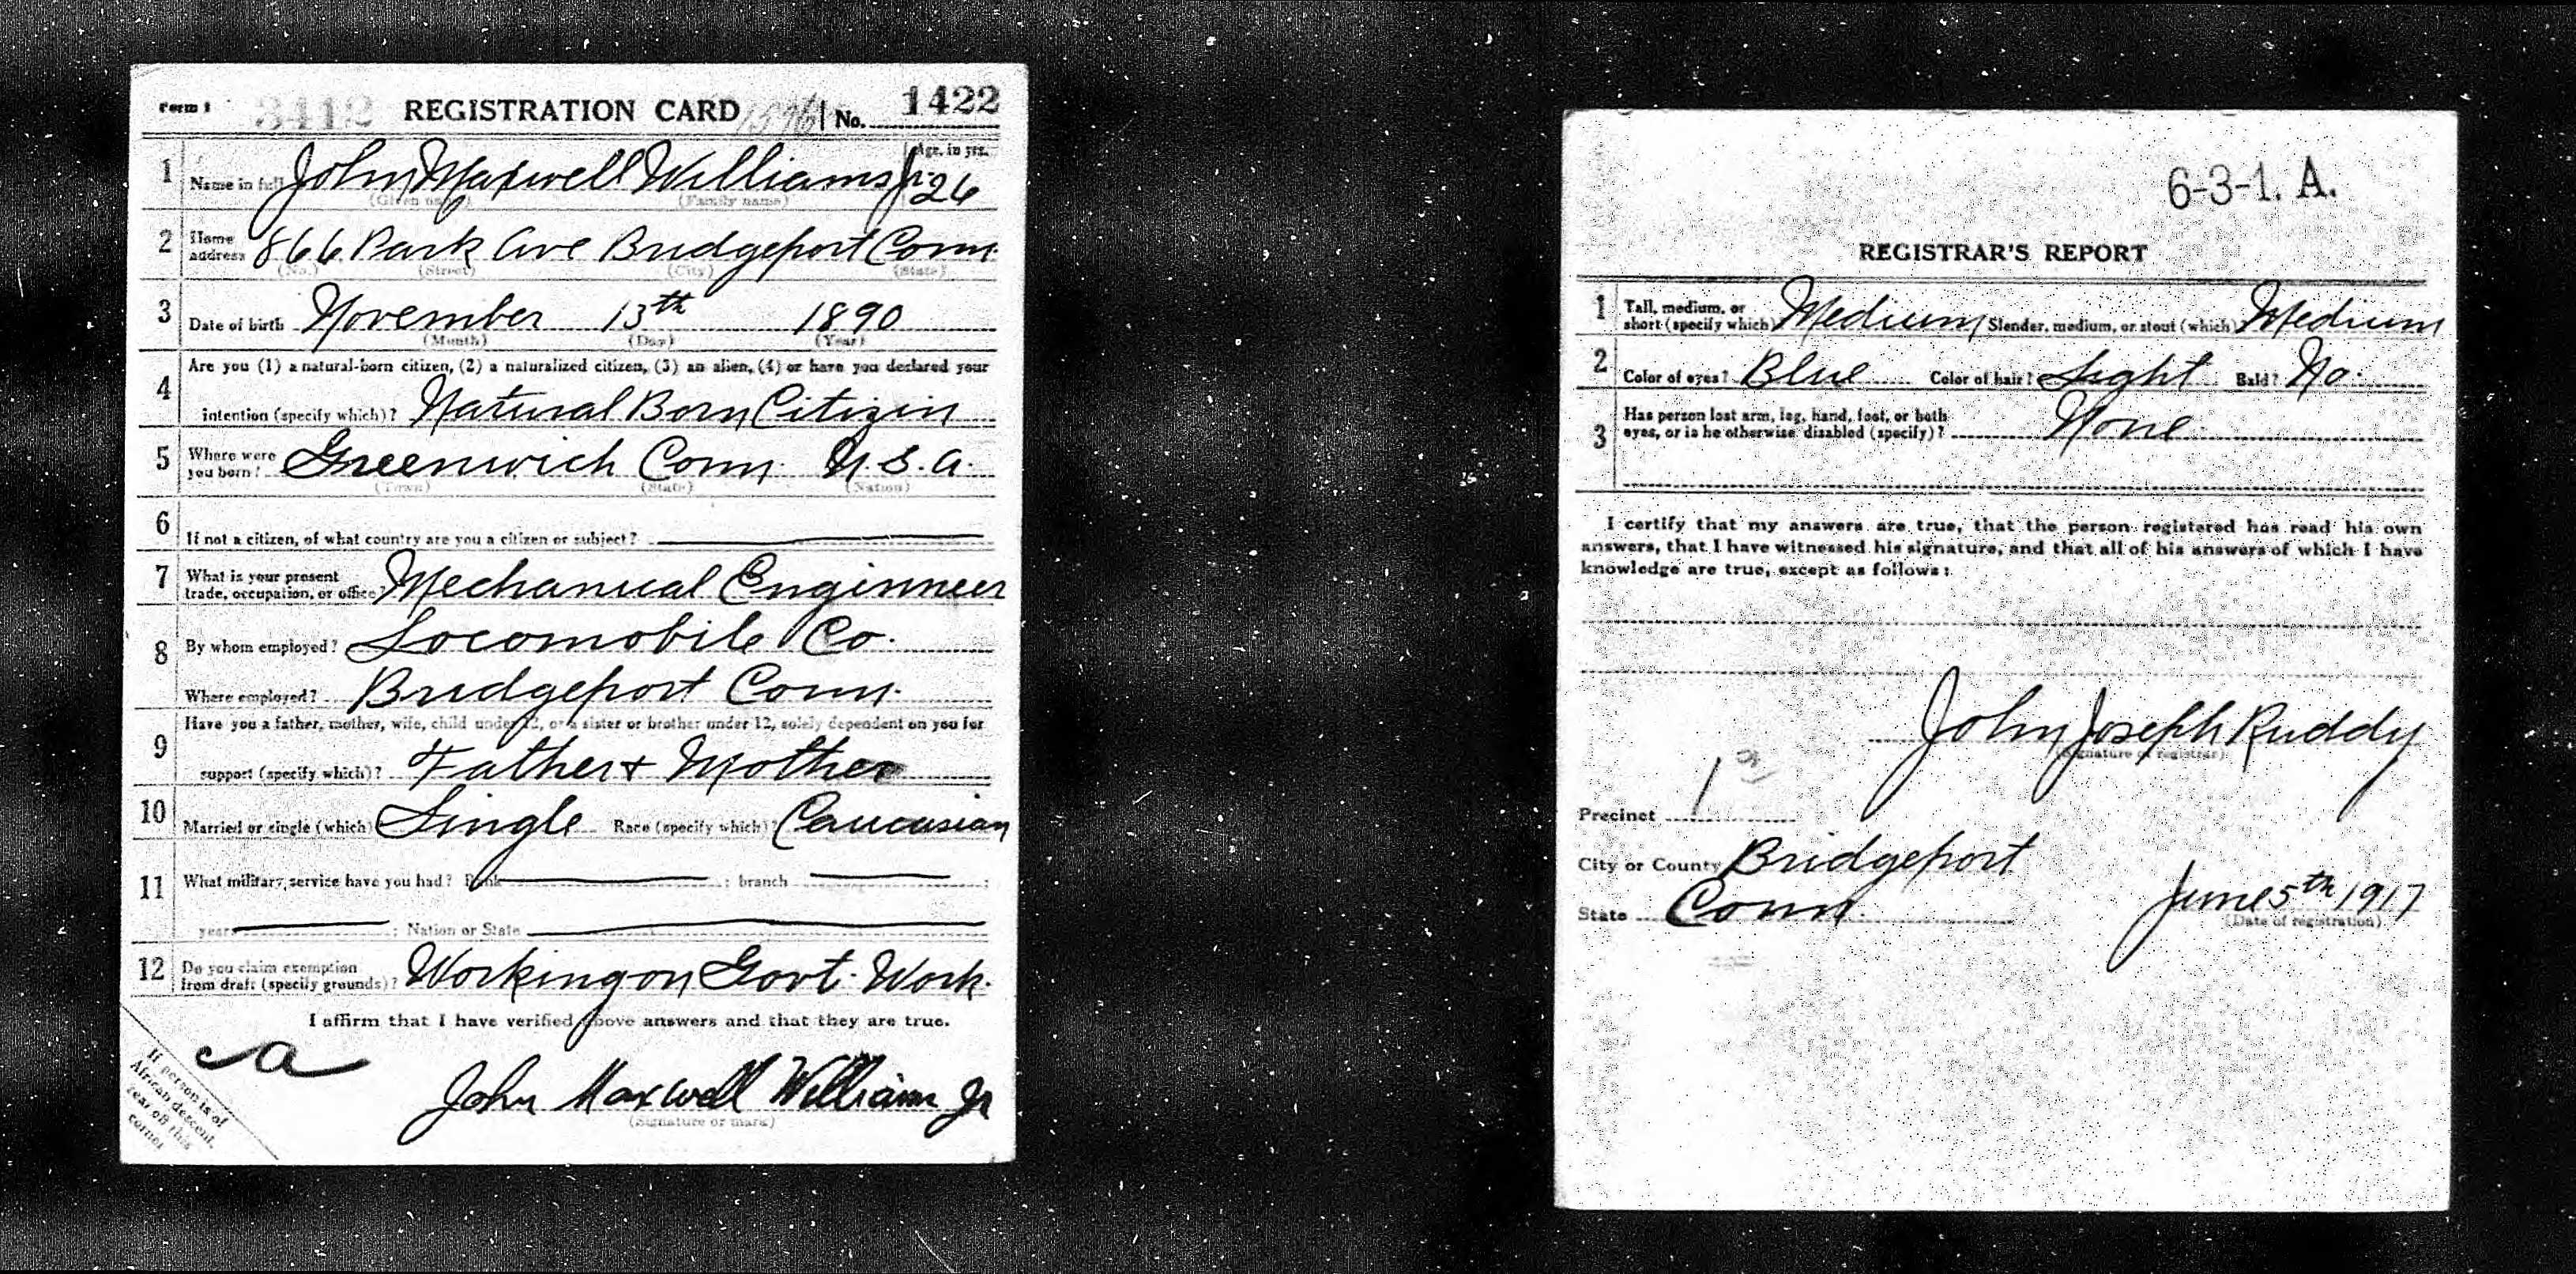 Form 1 3412 REGISTRATION CARD No. 1422
1 Name in full John Maxwell Williams Jr. Age, in yrs. 26
(Given name) (Family name)
2 Home address 866 Park Ave Bridgeport Conn.
(No.) (Street) (City) (State)
3 Date of birth November 13th 1890
(Month) (Day) (Year)
4 Are you (1) a natural-born citizen, (2) a naturalized citizen, (3) an alien, (4) or have you declared your
intention (specify which)? Natural Born Citizin
5 Where were you born? Greenwich Conn. U.S.A.
(Town) (State) (Nation)
6 If not a citizen, of what country are you a citizen or subject?
7 What is your present trade, occupation, or office Mechanical Enginneer
8 By whom employed? Locomobile Co.
Where employed? Bridgeport Conn.
9 Have you a father, mother, wife, child under 12, or a sister or brother under 12, solely dependent on you for
support (specify which)? Father + Mother
10 Married or single (which) Single Race (specify which)? Caucasian
11 What military service have you had? Rank ; branch ;
years ; Nation or State
12 Do you claim exemption from draft (specify grounds)? Working on Govt. Work.
I affirm that I have verified above answers and that they are true.
a
John Maxwell Williams Jr
(Signature or mark)
If person is of
African descent,
tear off this
corner
6-3-1. A.
REGISTRAR'S REPORT
1 Tall, medium, or short (specify which) Medium Slender, medium, or stout (which) Medium
2 Color of eyes? Blue Color of hair? Light Bald? No.
3 Has person lost arm, leg, hand, foot, or both
eyes, or is he otherwise disabled (specify)? None
I certify that my answers are true, that the person registered has read his own
answers, that I have witnessed his signature, and that all of his answers of which I have
knowledge are true, except as follows:
John Joseph Ruddy
(Signature of registrar)
Precinct 1
City or County Bridgeport
State Conn. June 5th 1917
(Date of registration)